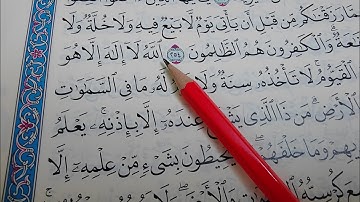 رَزَقْنَٰكُم مِّن قَبْلِ أَن يَأْتِىَ يَوْمٌ لَّا بَيْعٌ فِيهِ وَلَا خُلَّةٌ وَلَا
وَٱلْكَٰفِرُونَ هُمُ ٱلظَّٰلِمُونَ ٢٥٤ ٱللَّهُ لَآ إِلَٰهَ إِلَّا هُوَ
ٱلْقَيُّومُ لَا تَأْخُذُهُۥ سِنَةٌ وَلَا لَّهُۥ مَا فِى ٱلسَّمَٰوَٰتِ
ٱلْأَرْضِ مَن ذَا ٱلَّذِى يَشْفَعُ عِندَهُۥٓ إِلَّا بِإِذْنِهِۦ يَعْلَمُ
يهِمْ وَمَا خَلْفَهُمْ يُحِيطُونَ بِشَىْءٍ مِّنْ عِلْمِهِۦٓ إِلَّا
كُرْسِيُّهُ ٱلسَّمَٰوَٰتِ وَٱلْأَرْضَ